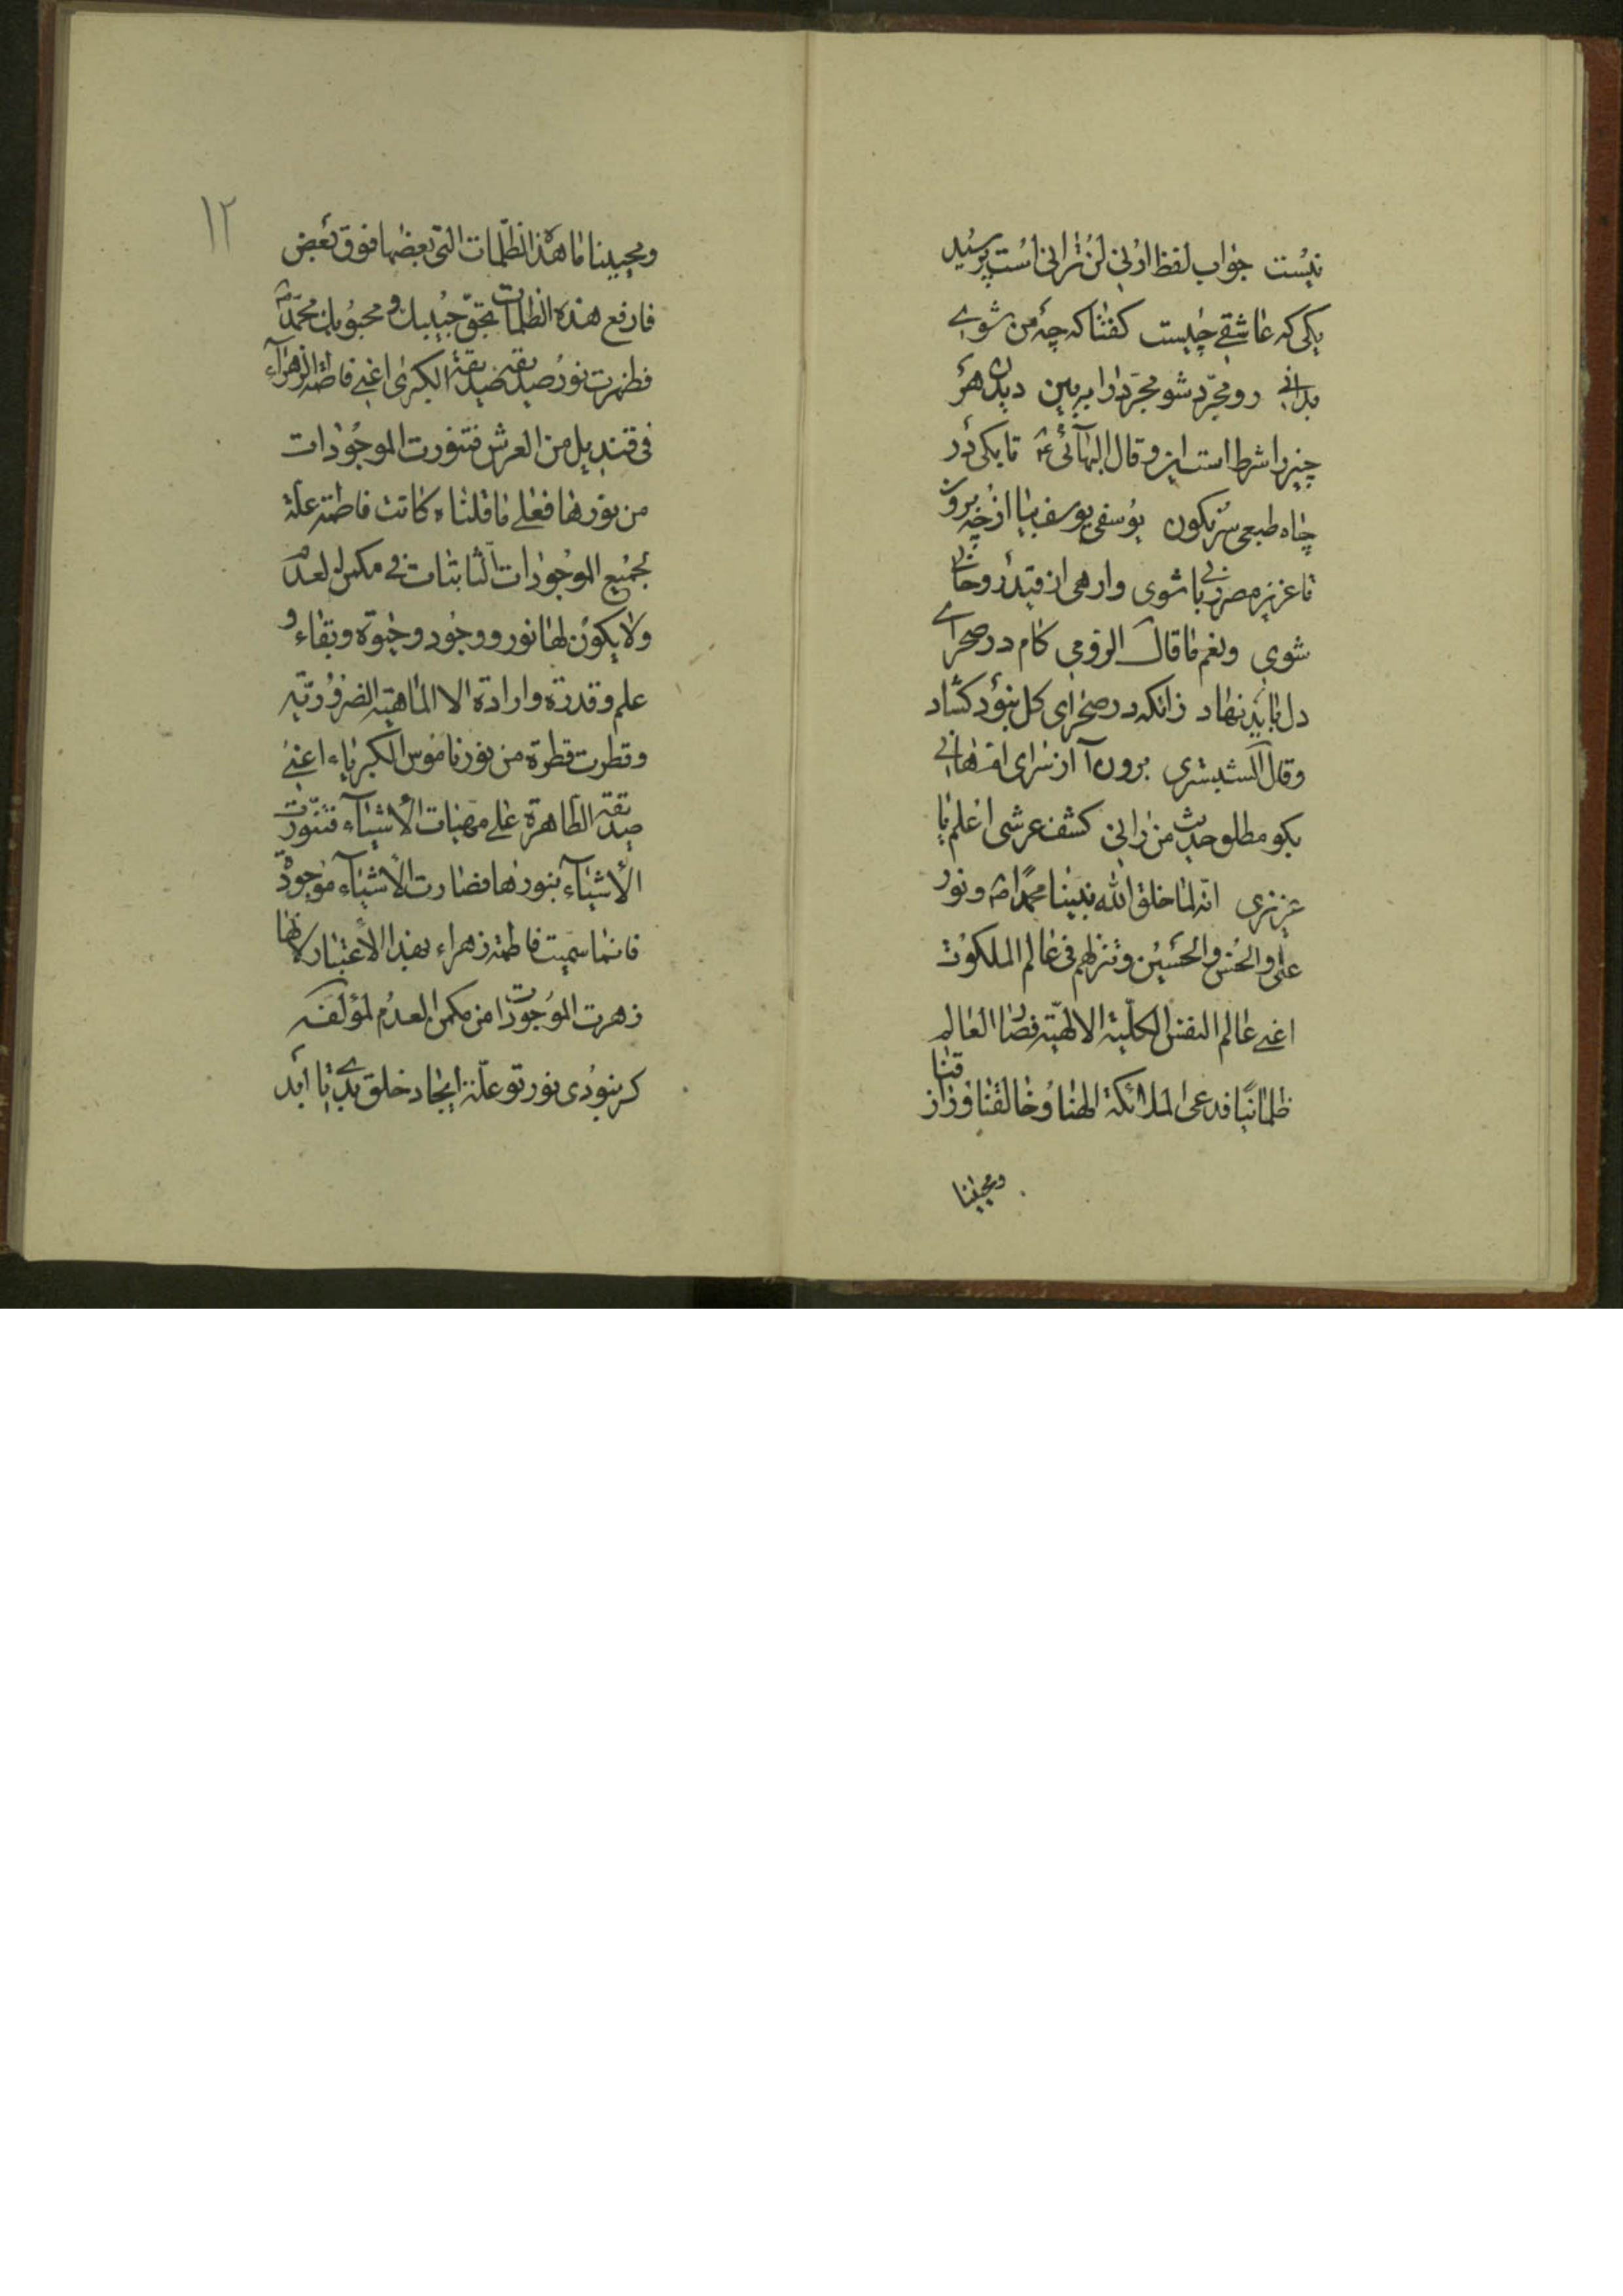 نیست جواب لفظ ارنی لن ترانی است پرسید
یکی که عاشقی چیست کفتا که چه من شوے
بدانی رو مجرّد شو مجرّد را ببین دیدن هر
چیز را شرط است این و قال البهائی ع تا بکی در
چاه طبعی سرنکون یوسفی یوسف بیا از چه برون
تا عزیز مصر ربانی شوی وارهی از قید و روحانی
شوی و نعم ما قال الرومی کام در صحرای
دل باید نهاد زانکه در صحرای کل نبود کشاد
و قال الشبستری برون آ از سرای امهانی
بکو مطلوب حدیث من رانی کشف عرشی اعلم یا
عزیزی انّه لما خلق الله نبینا محمدا ص و نور
علی و الحسن و الحسین و تنزلهم فی عالم الملکوت
اعنی عالم النفس الکلیة الالهیّة فصار العالم
ظلمانیا فدعی الملائکة الهنا و خالقنا و رازقنا
و مجیبنا
١٢
و مجیبنا ما هذه الظلمات التی بعضها فوق بعض
فارفع هذه الظلمات بحقّ حبیبک و محبوبک محمّد ص
فظهرت نور صدیقة صدیقة الکبری اعنی فاطمة الزهرآء
فی قندیل من العرش فتنورت الموجودات
من نورها فعلی ما قلناه کانت فاطمة علّة
لجمیع الموجودات الثابتات فی مکمن العدم
و لا یکون لها نور و وجود و حیوة و بقاء و
علم و قدرة و ارادة الا الماهیّة الضروریّة
و قطرت قطرة من نور ناموس الکبریاء اعنی
صدیقة الطاهرة علی مهیات الأشیآء فتنوّرت
الأشیآء بنورها فصارت الأشیآء موجودة
فانما سمیت فاطمة زهراء بهذا الأعتبار لانها
زهرت الموجودات من مکمن العدم لمؤلفه
کر نبودی نور تو علّة ایجاد خلق بدی تا ابد